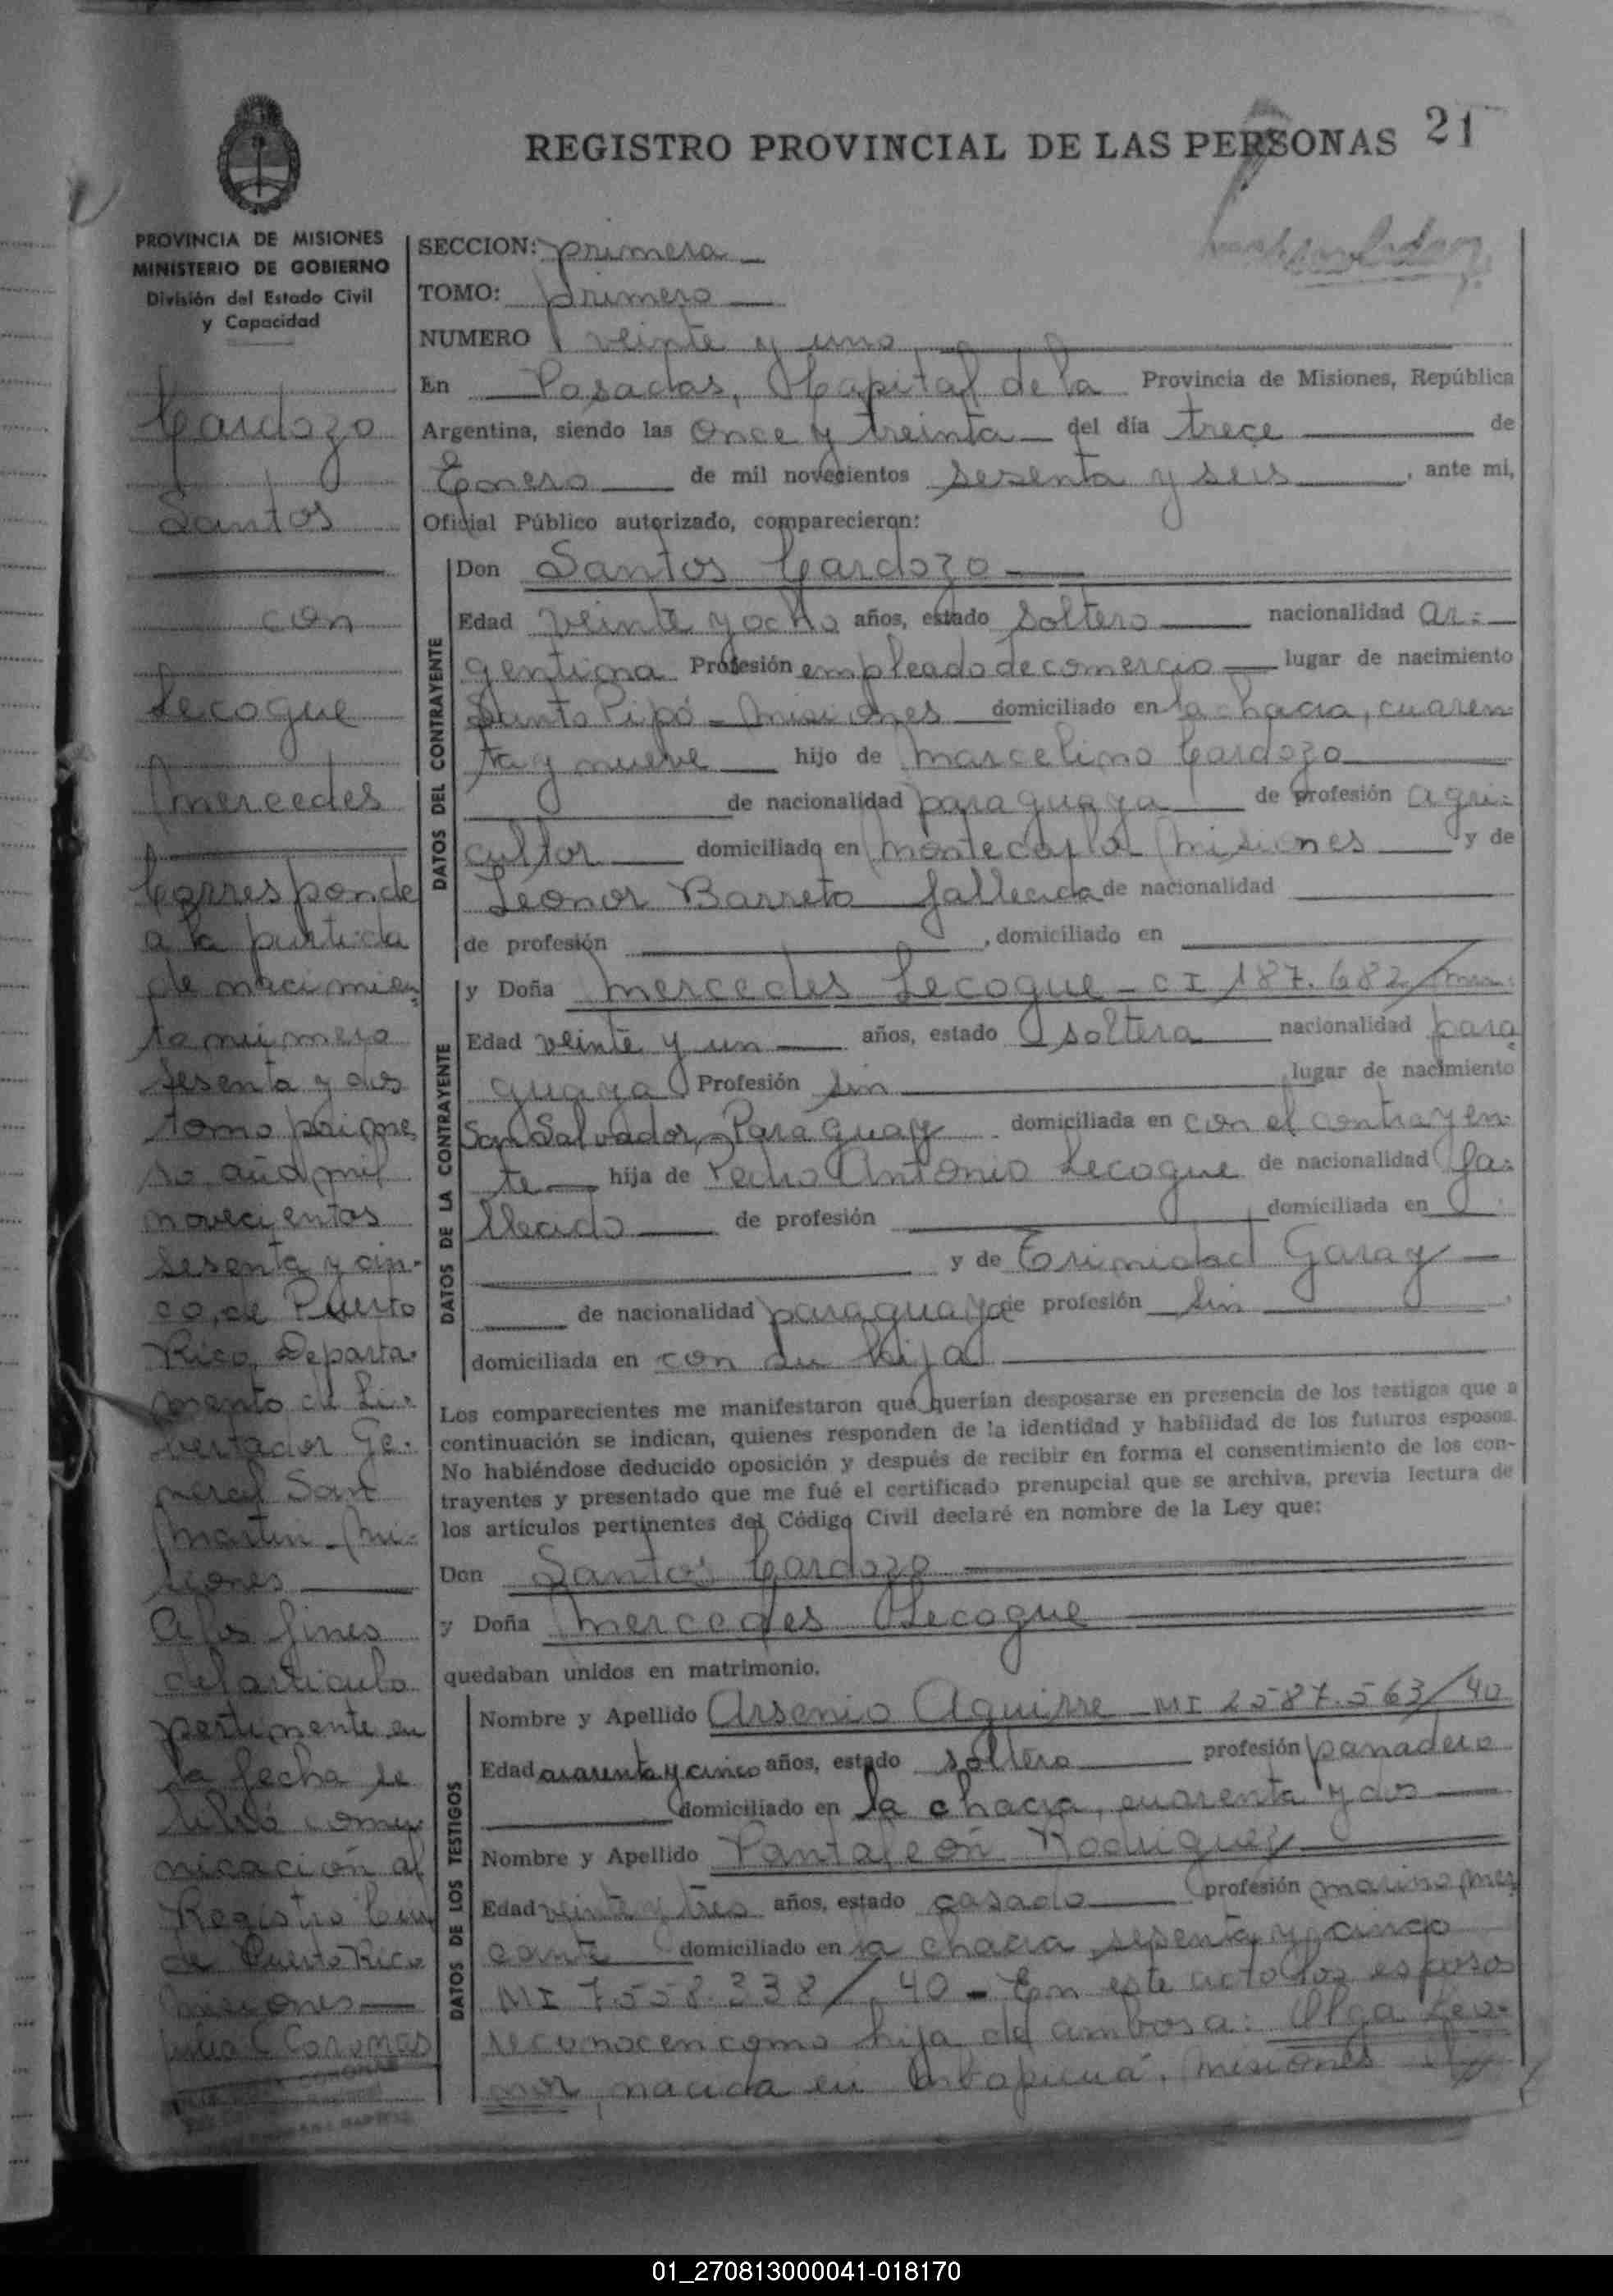 REGISTRO PROVINCIAL DE LAS PERSONAS 21
PROVINCIA DE MISIONES
MINISTERIO DE GOBIERNO
División del Estado Civil
y Capacidad
Cardozo
Santos
con
Lecogue
Mercedes
Corresponde
a la partida
de nacimien
to número
sesenta y dos
tomo prime
ro año mil
novecientos
sesenta y cin-
co, de Puerto
Rico, Departa-
mento de Li-
vertador Ge-
neral San
Martin - Mi-
siones
A los fines
del articulo
pertinente en
la fecha se
libró comu
nicación al
Registro Civil
de Puerto Rico
Misiones
SECCION: primera
TOMO: primero
NUMERO veinte y uno
En Posadas, Capital de la Provincia de Misiones, República
Argentina, siendo las Once y treinta del día trece de
Enero de mil novecientos sesenta y seis, ante mi,
Oficial Público autorizado, comparecieron:
DATOS DEL CONTRAYENTE
Don Santos Cardozo
Edad veinte y ocho años, estado soltero nacionalidad ar-
gentina Profesión empleado de comercio lugar de nacimiento
Santo Pipó - Misiones domiciliado en la chacra, cuaren-
ta y nueve hijo de Marcelino Cardozo
de nacionalidad paraguaya de profesión agri-
cultor domiciliado en Montecarlo Misiones y de
Leonor Barreto fallecida de nacionalidad
de profesión , domiciliado en
DATOS DE LA CONTRAYENTE
y Doña Mercedes Lecogue - CI 187.682/Mn.
Edad veinte y un años, estado soltera nacionalidad para
guaya Profesión sin lugar de nacimiento
San Salvador, Paraguay domiciliada en con el contrayen-
te hija de Pedro Antonio Lecogue de nacionalidad fa-
llecido de profesión domiciliada en
y de Trinidad Garay
de nacionalidad paraguaya de profesión sin
domiciliada en con su hija
Los comparecientes me manifestaron que querían desposarse en presencia de los testigos que a
continuación se indican, quienes responden de la identidad y habilidad de los futuros esposos.
No habiéndose deducido oposición y después de recibir en forma el consentimiento de los con-
trayentes y presentado que me fué el certificado prenupcial que se archiva, previa lectura de
los artículos pertinentes del Código Civil declaré en nombre de la Ley que:
Don Santos Cardozo
y Doña Mercedes Lecogue
quedaban unidos en matrimonio.
DATOS DE LOS TESTIGOS
Nombre y Apellido Arsenio Aguirre - MI 2587.563/40
Edad cuarenta y cinco años, estado soltero profesión panadero
domiciliado en la chacra, cuarenta y dos
Nombre y Apellido Pantaleón Rodriguez
Edad veinte y tres años, estado casado profesión marino mer
cante domiciliado en la chacra sesenta y cinco
MI 7.558.338/40 - En este acto los esposos
reconocen como hija de ambos a: Olga Leo-
nor, nacida en Misiones
01_270813000041-018170